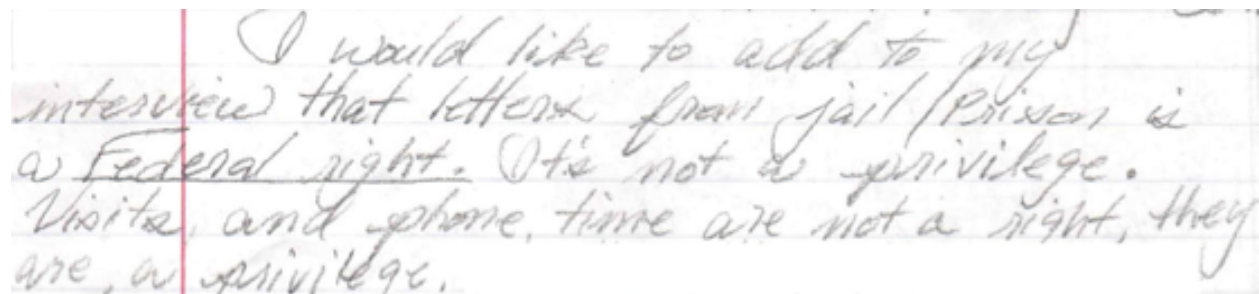 I would like to add to my
interview that letters from jail/Prison is
a Federal right. It's not a privilege.
Visits and phone time are not a right, they
are a privilege.